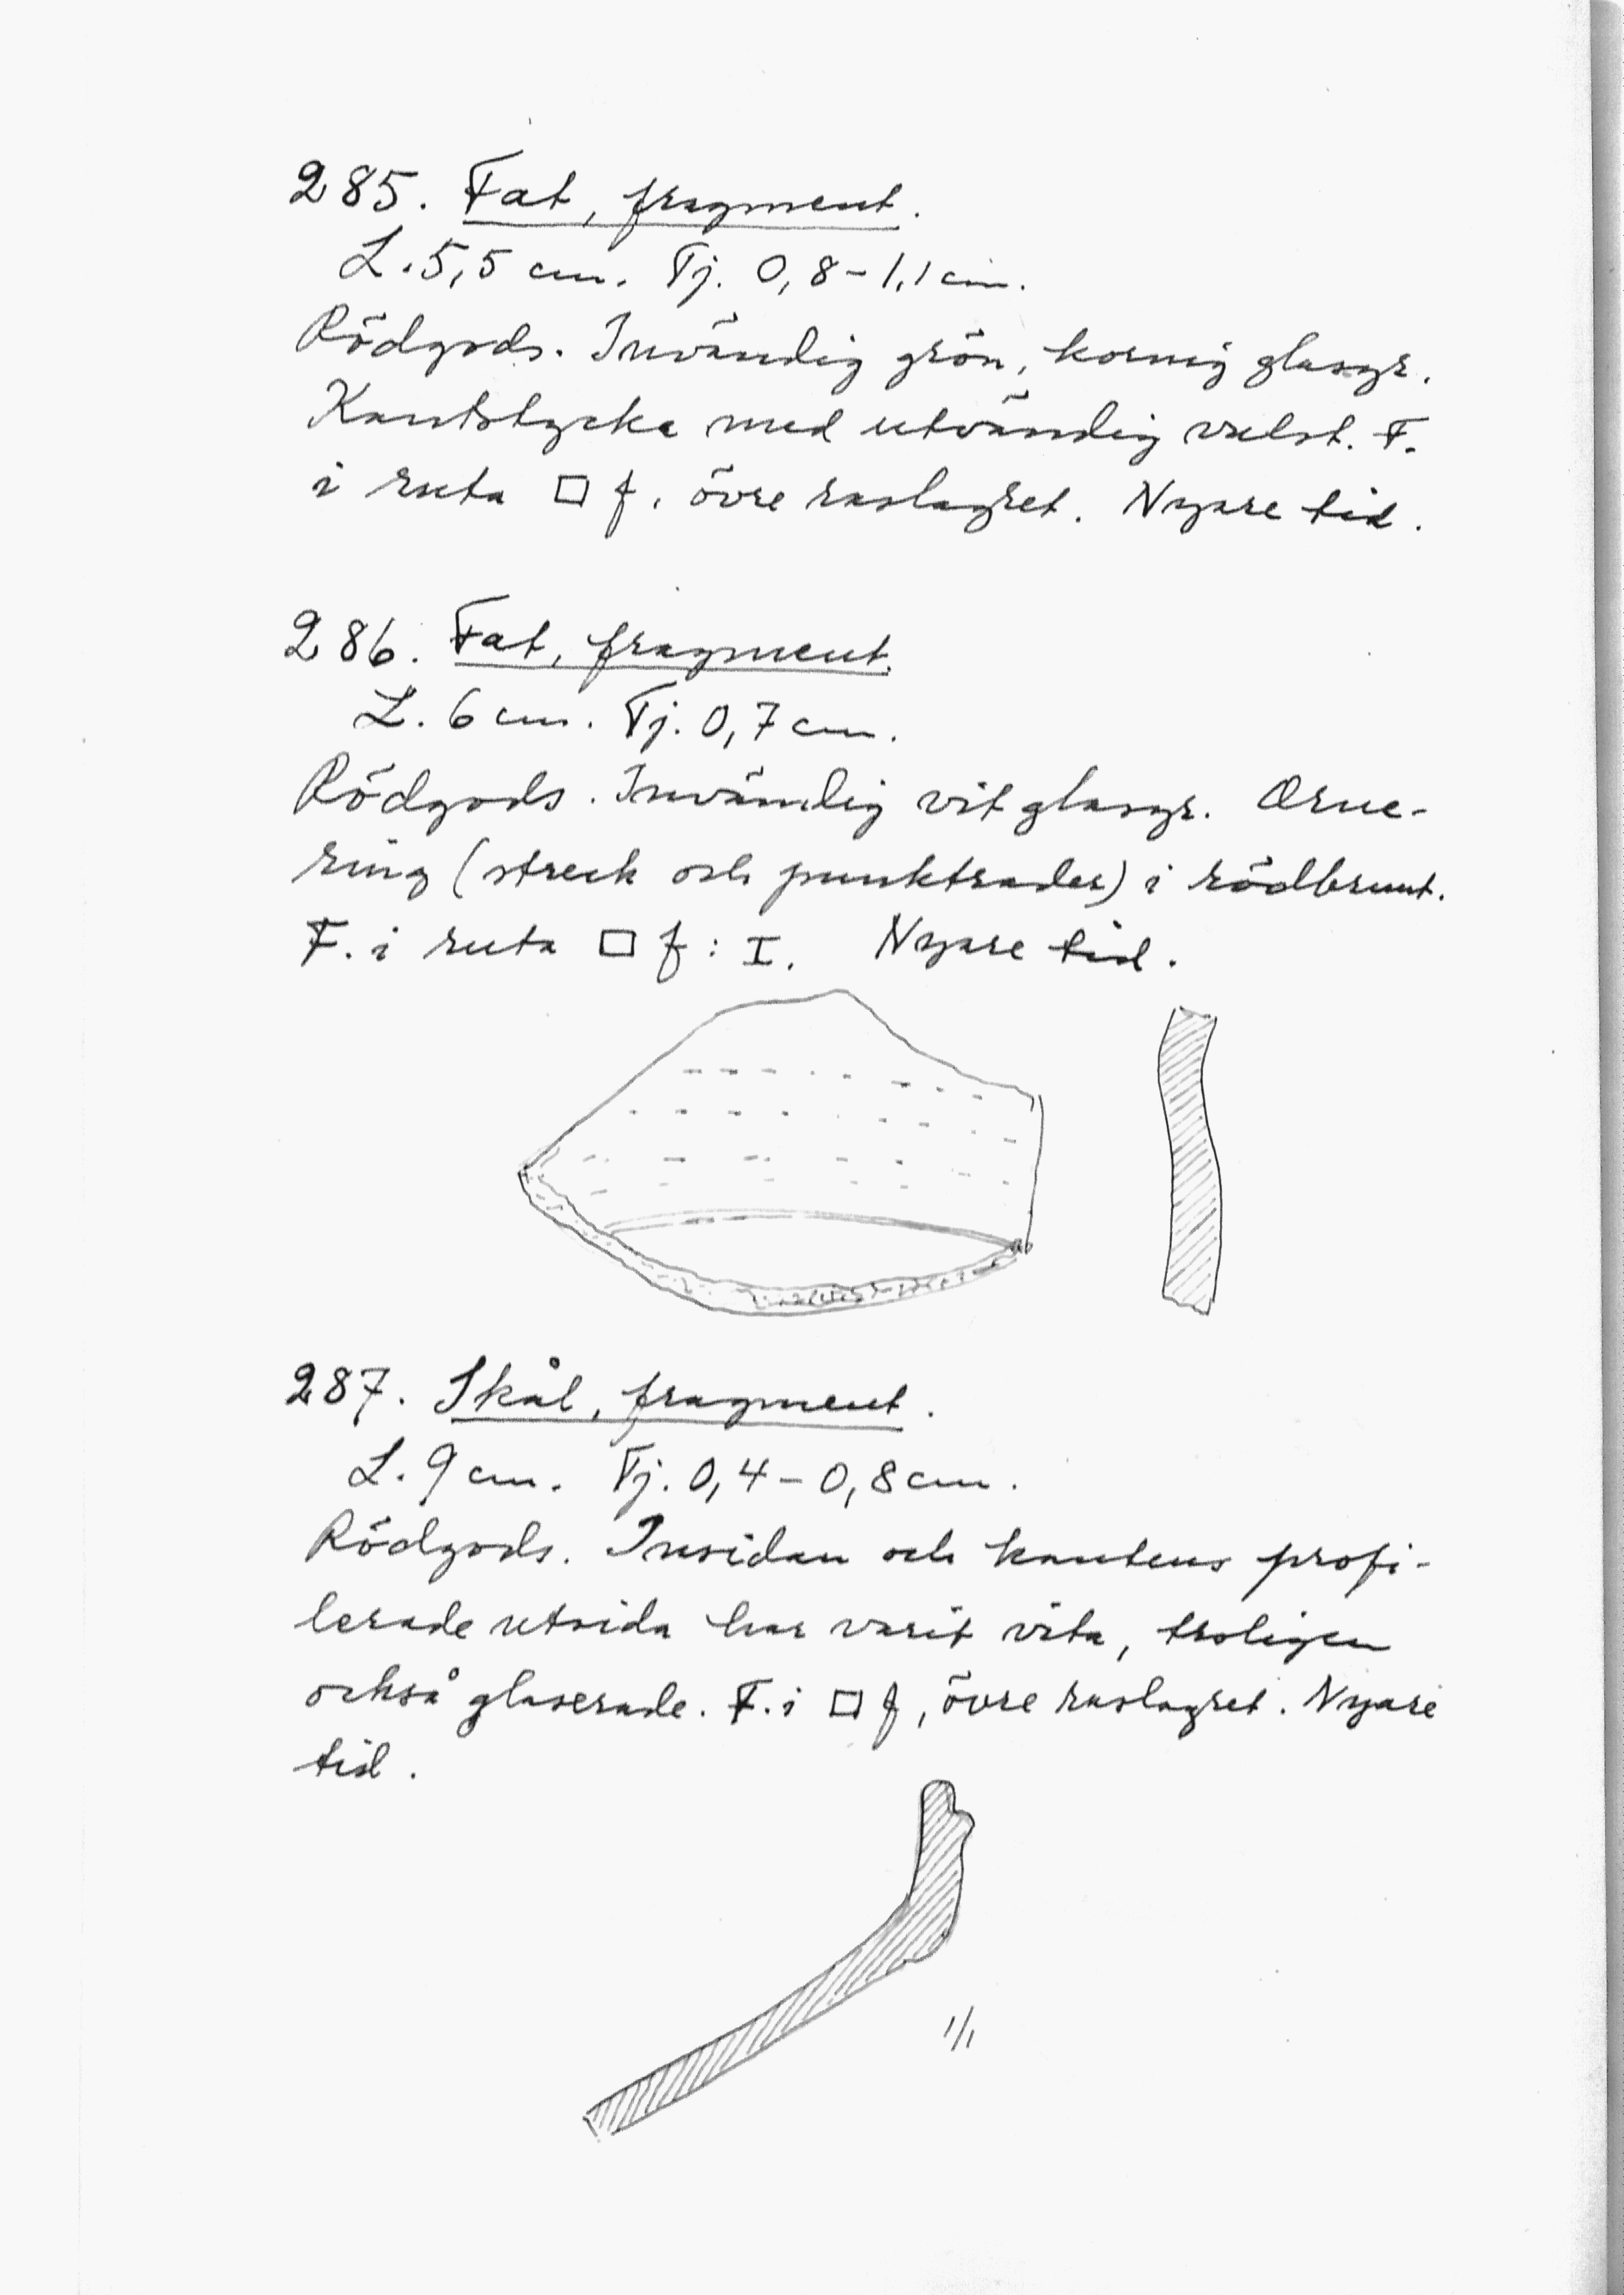 285. Fat, fragment.
L. 5,5 cm. Tj. 0,8-1,1 cm.
Rödgods. Invändig grön, kornig glasyr.
Kantstycke med utvändig vulst. F.
i ruta □ f, övre raslagret. Nyare tid.
286. Fat, fragment.
L. 6 cm. Tj. 0,7 cm.
Rödgods. Invändig vit glasyr. Orne-
ring (streck och punktrader) i rödbrunt.
F. i ruta □ f: I. Nyare tid.
287. Skål, fragment.
L. 9 cm. Tj. 0,4-0,8 cm.
Rödgods. Insidan och kantens profi-
lerade utsida har varit vita, troligen
också glaserade. F. i □ f, övre raslagret. Nyare
tid.
1/1